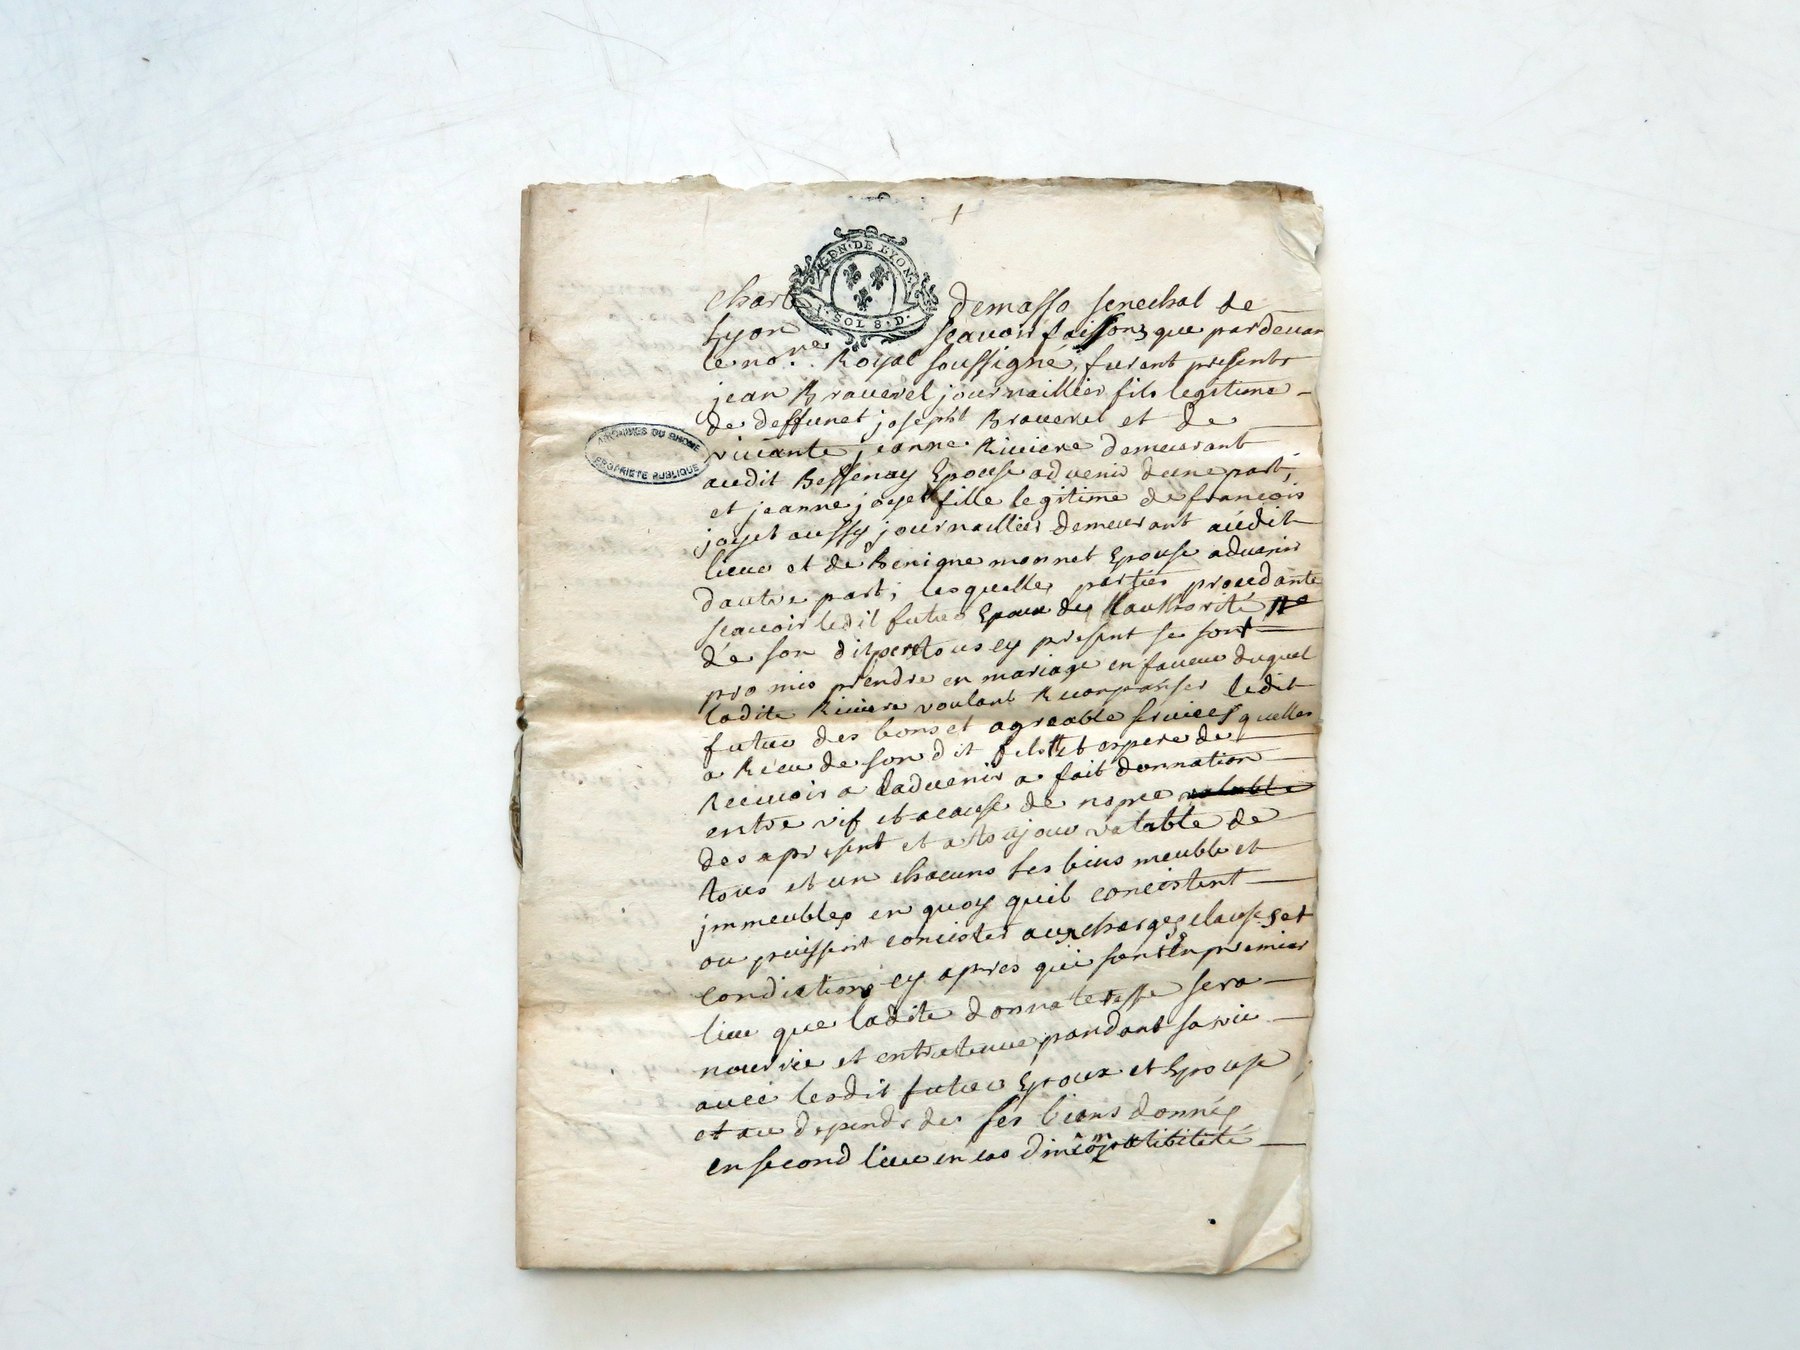 GEN. DE LYON
SOL 8. D.
ARCHIVES DU RHONE
PROPRIETE PUBLIQUE
Charle demasso senechal de
Lyon scauoir faisons que pardeuan
le no.re Royal soussigné, furent presents
jean Brauerel journaillier fils legitime
de deffunct joseph Brauerel et de
viuante jeanne Riuiere demeurant
audit Bessenay Epouse aduenir dune part,
et jeanne joyet fille legitime de francois
joyet aussy journaillier demeurant audit
lieue et de Benigne monnet Epouse aduenir
dautre part, lesquelles parties procedante
scauoir ledit futur Epoux de Lauthorité
de son dit pere tous cy present se sont
promis prendre en mariage en faueur duquel
ladite Riuiere voulant Recompanser ledit
futur des bons et agreable seruices quelles
a Recu de son dit fils et espere de
Receuoir a Laduenir a fait donnation
entre vif et acause de nopce valable
des apresent et a toujour valable de
tous et un chacuns ses biens meuble et
jmmeubles en quoy quil concistent
ou puissent concister aux charges clauses et
condictions cy apres qui sont En premier
lieu que ladite donnateresse sera
nourrie et entretenue pandant sa vie
auec lesdit futur Epoux et Epouse
et au depends de ses biens donnés
en second lieu en cas dincompatibilité